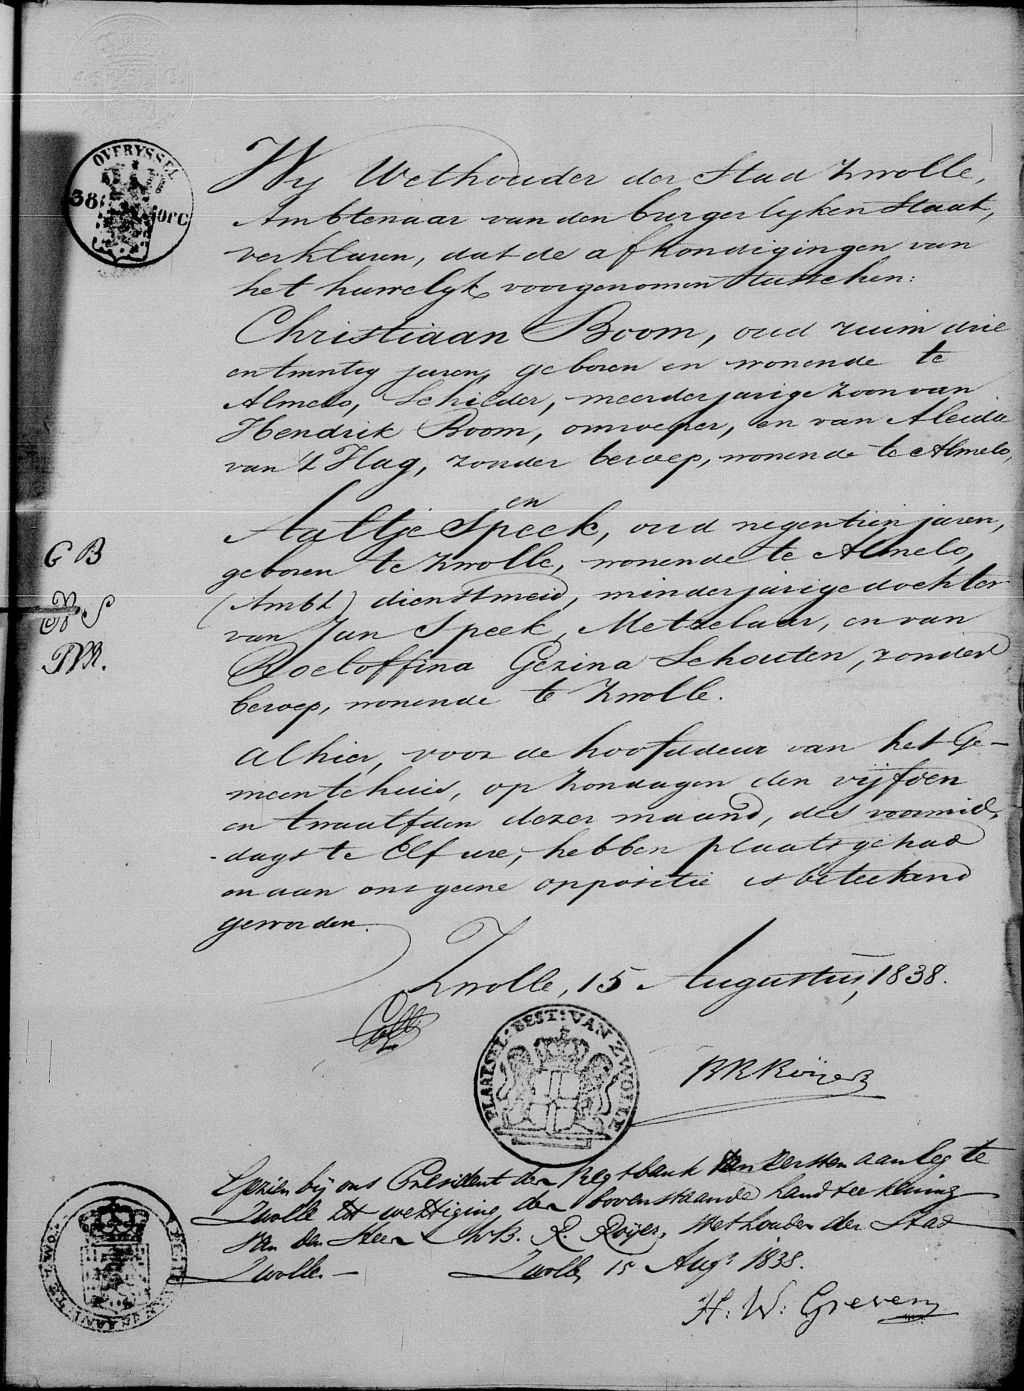 OVERYSSEL
38
Wy Wethouder der Stad Zwolle,
Ambtenaar van den burgerlyken Staat,
verklaren, dat de afkondigingen van
het huwelyk, voorgenomen tusschen:
Christiaan Boom, oud ruim drie
en twintig jaren, geboren en wonende te
Almelo, Schilder, meerderjarige zoon van
Hendrik Boom, omroeper, en van Aleida
van 't Hag, zonder beroep, wonende te Almelo,
en
Aaltje Speek, oud negentien jaren,
geboren te Zwolle, wonende te Almelo,
(Ambt) dienstmeid, minderjarige dochter
van Jan Speek, Metzelaar, en van
Roeloffina Gezina Schouten, zonder
beroep, wonende te Zwolle.
G B
S
Alhier, voor de hoofddeur van het Ge-
meentehuis, op Zondagen den vijfden
en twaalfden dezer maand, des voormid-
dags te Elf ure, hebben plaats gehad
en aan ons geene oppositie is beteekend
geworden.
Zwolle, 15 Augustus, 1838.
PLAATSEL: BEST: VAN ZWOLLE
B R Roijer
Gezien bij ons President der Regtbank van Eersten aanleg te
Zwolle tot wettiging der bovenstaande handteekening
van den Heer Mr B. R. Roijer, Wethouder der Stad
Zwolle. — Zwolle 15 Augs 1838.
H: W: Greven